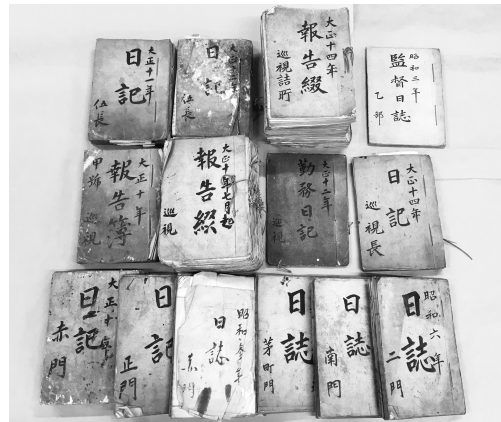 大正十一年
日記
伍長
日記
伍長
大正十四年
報告綴
巡視詰所
昭和三年
監督日誌
乙部
大正十年
報告簿
甲號
巡視
大正十年七月起
報告綴
巡視
大正十一年
勤務日記
巡視
大正十四年
日記
巡視長
日記
赤門
日記
正門
日誌
赤門
日誌
茅町門
日誌
南門
昭和六年
日誌
二門